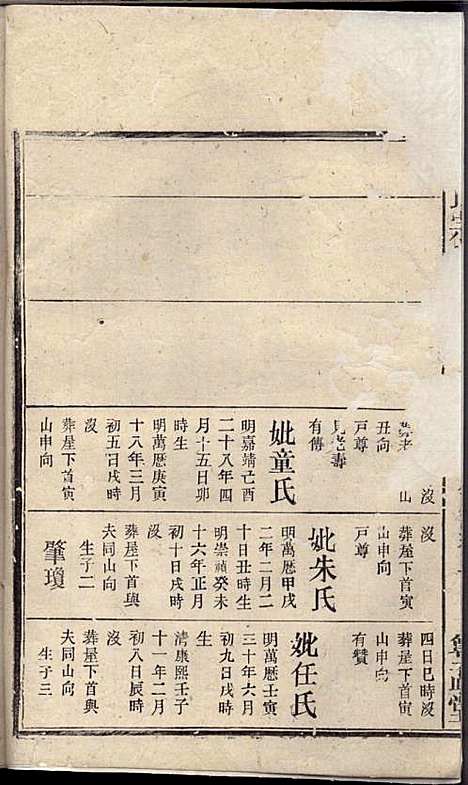 沒
山
丑向
戸尊
見老壽
有傳
妣童氏
明嘉靖己酉
二十八年四
月十五日卯
時生
明萬厯庚寅
十八年三月
初五日戌時
沒
葬屋下首寅
山申向
沒
葬屋下首寅
山申向
戸尊
妣朱氏
明萬厯甲戌
二年二月二
十日丑時生
明崇禎癸未
十六年正月
初十日戌時
沒
葬屋下首與
夫同山向
生子二
肇瓊
四日巳時沒
葬屋下首寅
山申向
有贊
妣任氏
明萬厯壬寅
三十年六月
初九日戌時
生
清康熙壬子
十一年二月
初八日辰時
沒
葬屋下首與
夫同山向
生子三